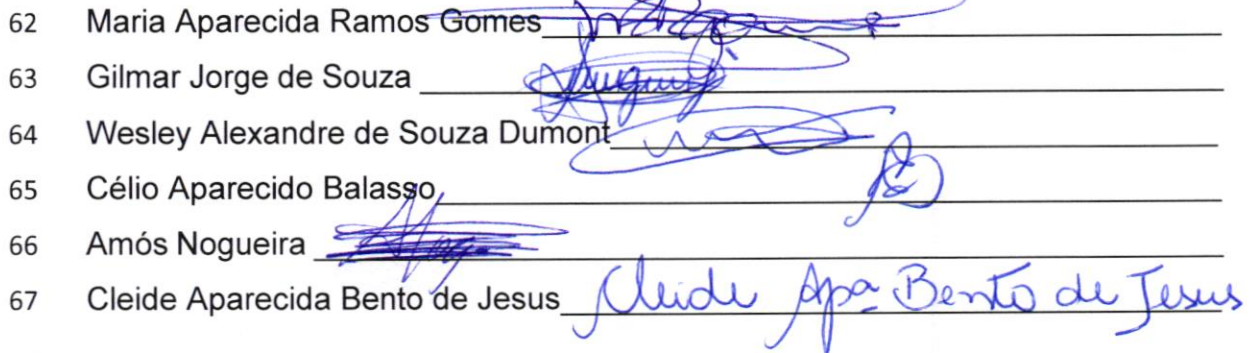 62 Maria Aparecida Ramos Gomes
63 Gilmar Jorge de Souza
64 Wesley Alexandre de Souza Dumont
65 Célio Aparecido Balasso
66 Amós Nogueira
67 Cleide Aparecida Bento de Jesus Cleide Apa Bento de Jesus